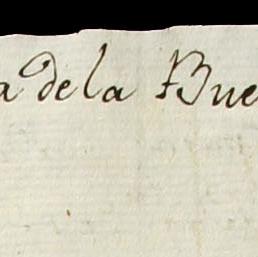 a de la Bue